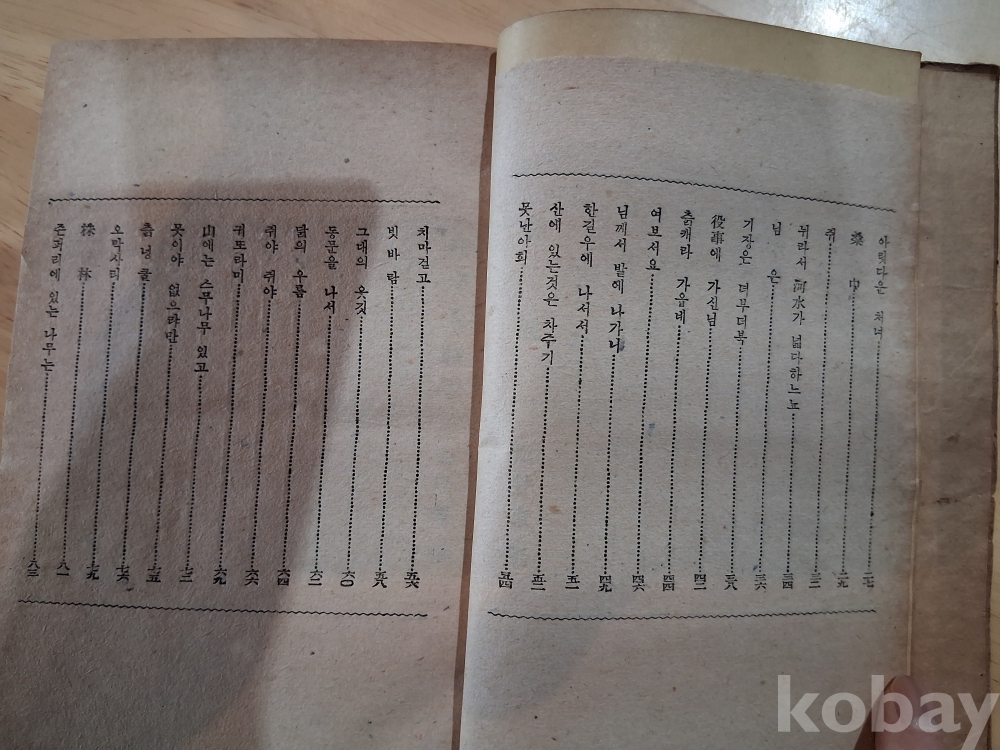 아릿다운 처녀 二七
桑中 二九
쥐 三二
뉘라서 河水가 넓다하느뇨 三四
님은 三六
기장은 더부더북 三八
役事에 가신님 四二
츩캐라 가음네 四四
여브서요 四六
님께서 발에 나가니 四九
한길우에 나서서 五一
산에 있는것은 차주기 五二
못난아희 五四
처마걷고 五六
빗바람 五八
그대의 옷깃 六〇
동문을 나서 六二
닭의 우름 六四
쥐야 쥐야 六六
귀또라미 六九
山에는 스무나무 있고
옷이야 없으랴만 七三
츩넝쿨 七五
오락사리 七六
株林 七九
준퍼리에 있는 나무는 八三
kobay